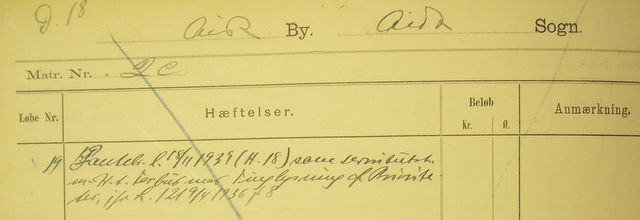 D. 18
By. Sogn.
Matr. Nr. 2 c
Løbe Nr. Hæftelser. Beløb Anmærkning.
Kr. Ø.
19 Panteb. l. 18/11 1939 (H. 18) som servitutst.
m. H. t. Forbud mod Tinglysning af Priorite-
ter, jfr. L. 121 9/4 1936 § 8